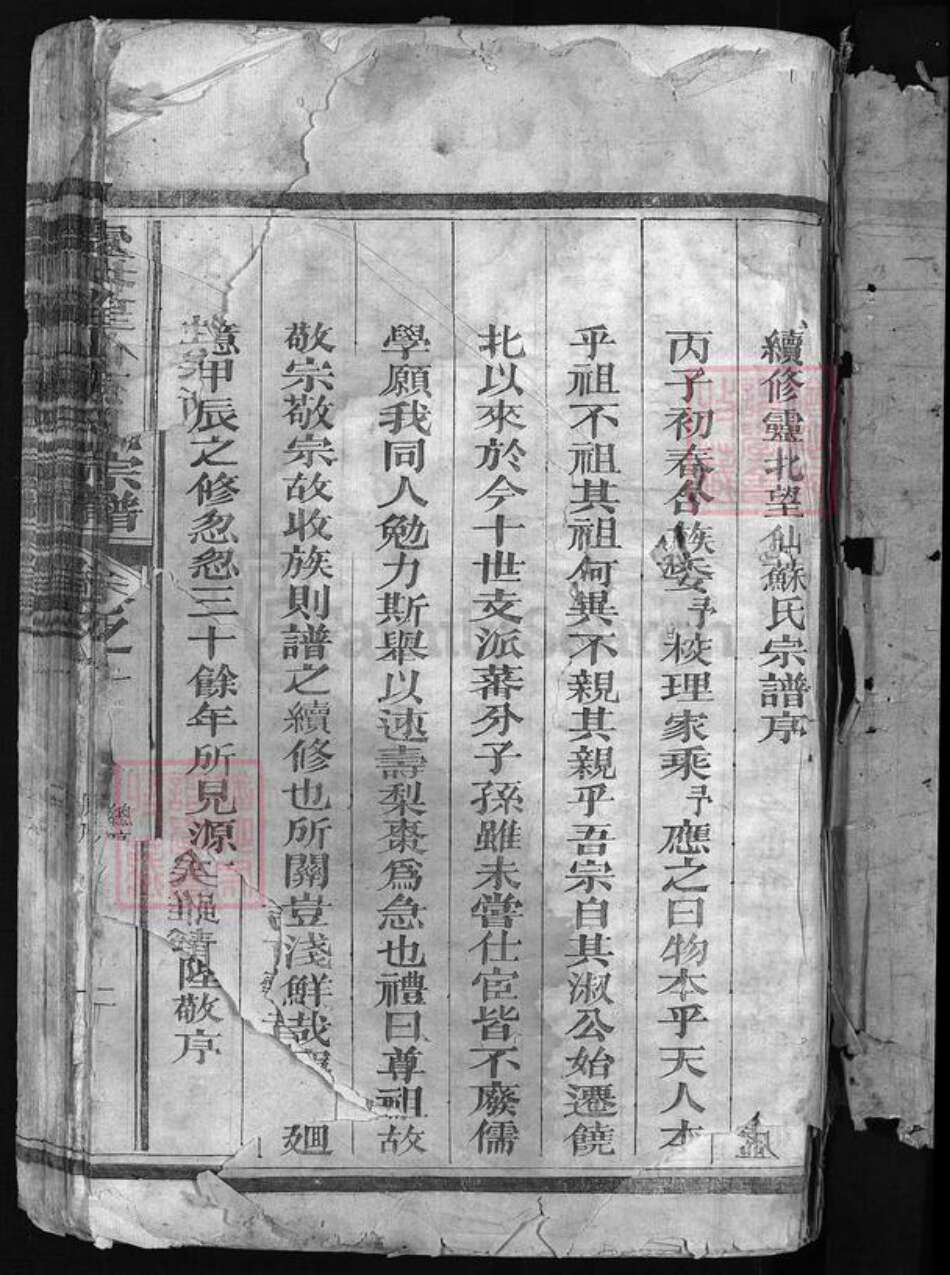 續修靈北望仙蘇氏宗譜序
丙子初春合族委予校理家乘予應之曰物本乎天人本
乎祖不祖其祖何異不親其親乎吾宗自其淑公始遷饒
北以來於今十世支派蕃分子孫雖未嘗仕宦皆不廢儒
學願我同人勉力斯舉以速壽梨棗為急也禮曰尊祖故
敬宗敬宗故收族則譜之續修也所關豈淺鮮哉 廻
憶甲辰之修忽忽三十餘年所見源 陞敬序
宗譜
卷之
總序